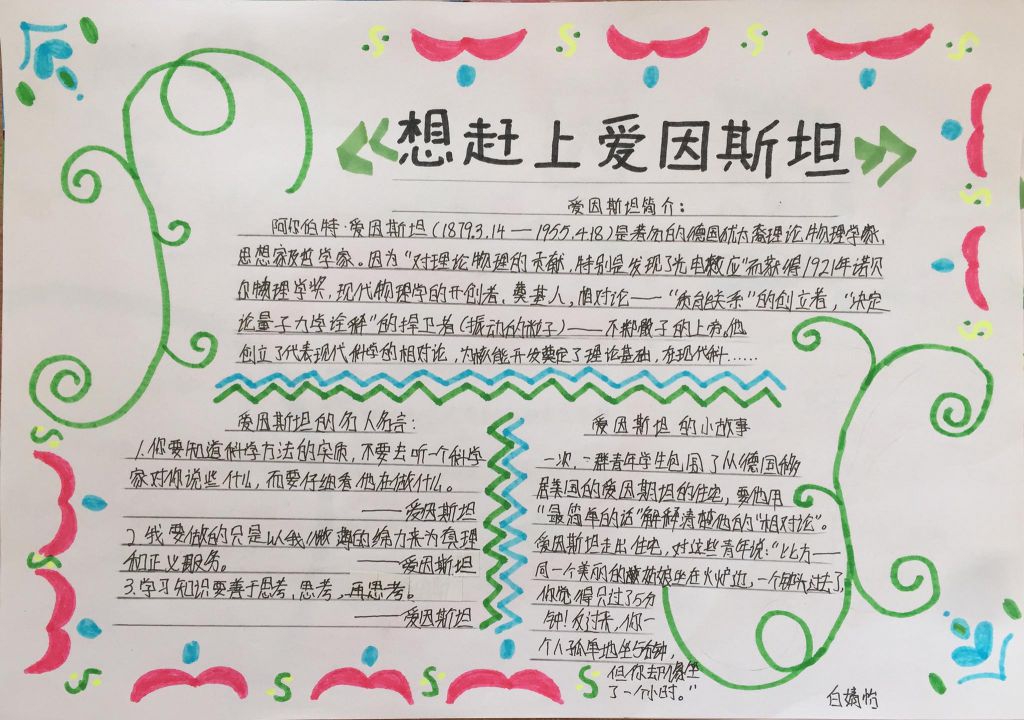 想赶上爱因斯坦
爱因斯坦简介：
阿尔伯特·爱因斯坦（1879.3.14—1955.4.18）是著名的德国犹太裔理论物理学家，
思想家及哲学家。因为“对理论物理的贡献，特别是发现了光电效应”而获得1921年诺贝
尔物理学奖，现代物理学的开创者、奠基人，相对论——“质能关系”的创立者，“决定
论量子力学诠释”的捍卫者（振动的粒子）——不掷骰子的上帝。他
创立了代表现代科学的相对论，为核能开发奠定了理论基础，在现代科……
爱因斯坦的名人名言：
1.你要知道科学方法的实质，不要去听一个科学
家对你说些什么，而要仔细看他在做什么。
——爱因斯坦
2.我要做的只是以我微薄的绵力来为真理
和正义服务。——爱因斯坦
3.学习知识要善于思考，思考，再思考。
——爱因斯坦
爱因斯坦的小故事
一次，一群青年学生包围了从德国移
居美国的爱因斯坦的住宅，要他用
“最简单的话”解释清楚他的“相对论”。
爱因斯坦走出住宅，对这些青年说：“比方——
同一个美丽的姑娘坐在火炉边，一个钟头过去了，
你觉得只过了5分
钟！反过来，你一
个人孤单地坐5分钟，
但你却像坐
了一个小时。”
白婧怡